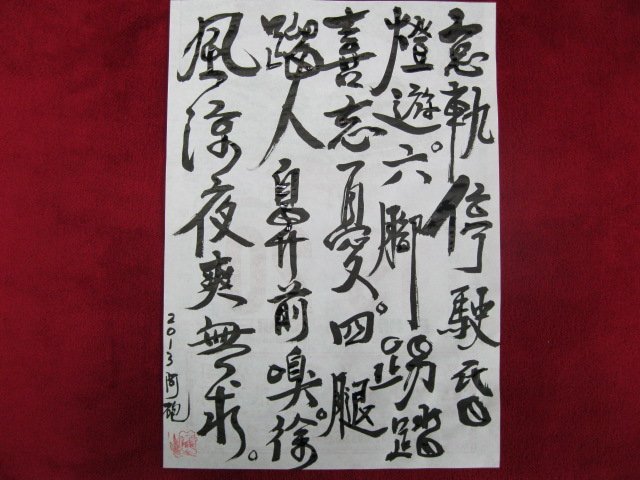 軌停駛昬
燈遊。六腳踢踏
喜忘憂。四腿
躍人鼻前嗅。徐
風涼夜爽無求。
2013阿砲